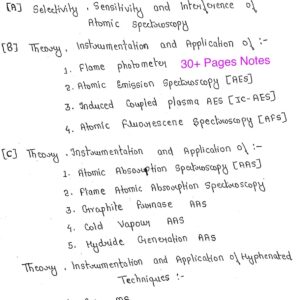 [A] Selectivity, Sensitivity and Interference of
Atomic Spectroscopy
[B] Theory, Instrumentation and Application of :-
1. Flame photometry 30+ Pages Notes
2. Atomic Emission Spectroscopy [AES]
3. Induced Coupled plasma AES [IC-AES]
4. Atomic Fluorescene Spectroscopy [AFS]
[C] Theory, Instrumentation and Application of :-
1. Atomic Absorption Spectroscopy [AAS]
2. Flame Atomic Absorption Spectroscopy
3. Graphite furnase AAS
4. Cold Vapour AAS
5. Hydride Generation AAS
Theory, Instrumentation and Application of Hyphenated
Techniques :-